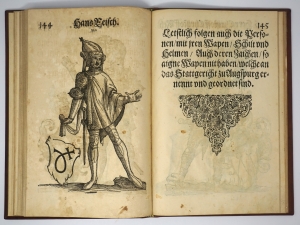 144
Hans Leisch.
145
Letstlich folgen auch die Perso-
nen/ mit jren Wapen/ Schilt vnd
Helmen/ Auch deren Zaichen/ so
aigne Wapen nit haben/ welche an
das Stattgericht zu Augspurg er-
nennt vnd geordnet sind.